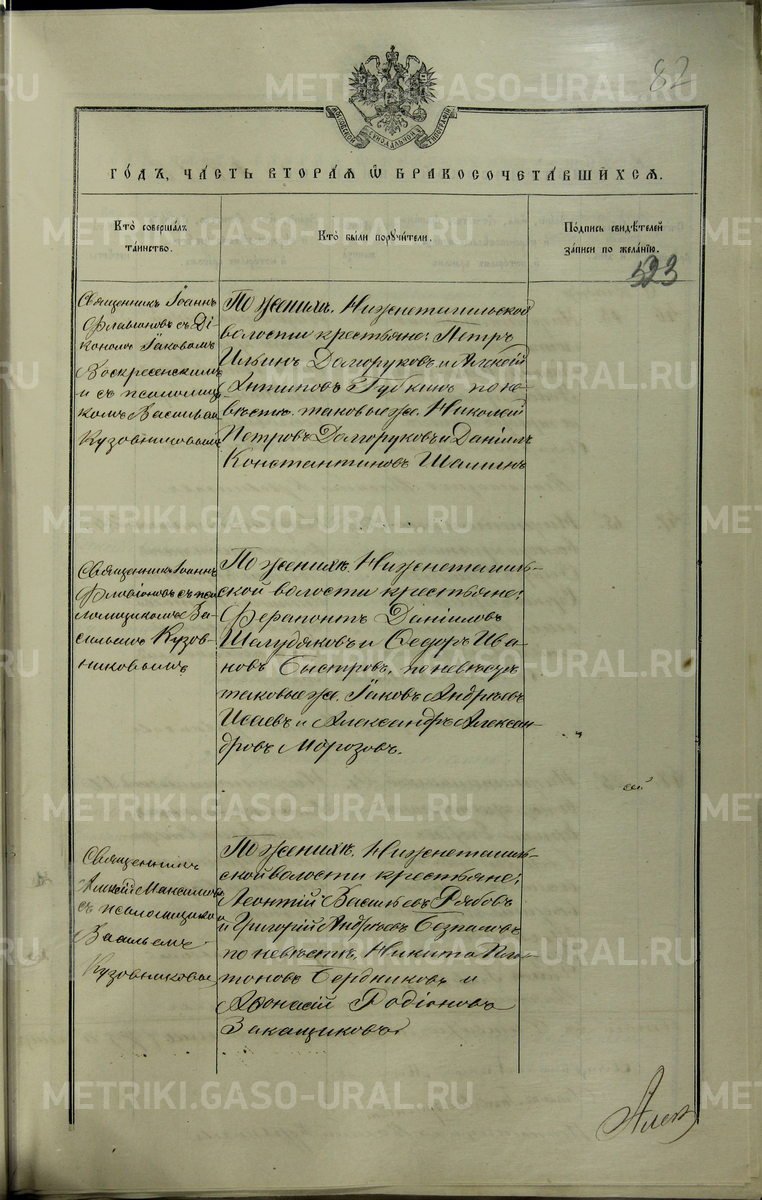 82
МОСКОВСКОЙ СѴНОДАЛЬНОЙ ТИПОГРАФІИ
ГОДЪ, ЧАСТЬ ВТОРАЯ Ѡ БРАКОСОЧЕТАВШИХСЯ.
Кто совершалъ
таинство.
Кто были поручители.
Подпись свидѣтелей
записи по желанію.
523
Священникъ Іоаннъ
Флавіановъ съ Ді-
кономъ Іаковомъ
Воскресенскимъ
и съ псаломщи
комъ Васильемъ
Кузовниковымъ
По женихѣ. Нижнетагильской
волости крестьяне: Петръ
Ильинъ Долгоруковъ и Алексѣй
Антиповъ Губкинъ, по не-
вѣстѣ таковые же. Николай
Петровъ Долгоруковъ и Даніилъ
Константиновъ Шалинъ
Священникъ Іоаннъ
Флавіановъ съ пса
ломщикомъ Ва-
сильемъ Кузов-
никовымъ
По женихѣ. Нижнетагиль-
ской волости крестьяне:
Ферапонтъ Даніиловъ
и Ѳедоръ Ива
новъ Быстровъ, по невѣстѣ
таковые же. Іаковъ Андреевъ
Исаевъ и Александръ Алексан-
дровъ Морозовъ.
Священникъ
Алексѣй
съ псаломщикомъ
Васильемъ
Кузовниковы
По женихѣ. Нижнетагиль-
ской волости крестьяне:
Леонтій Васильевъ Рябовъ
и Григорій Андреевъ
по невѣстѣ. Никита Пла-
тоновъ Бердниковъ и
Аѳонасій Родіоновъ
Закащиковъ
Алек
METRIKI.GASO-URAL.RU